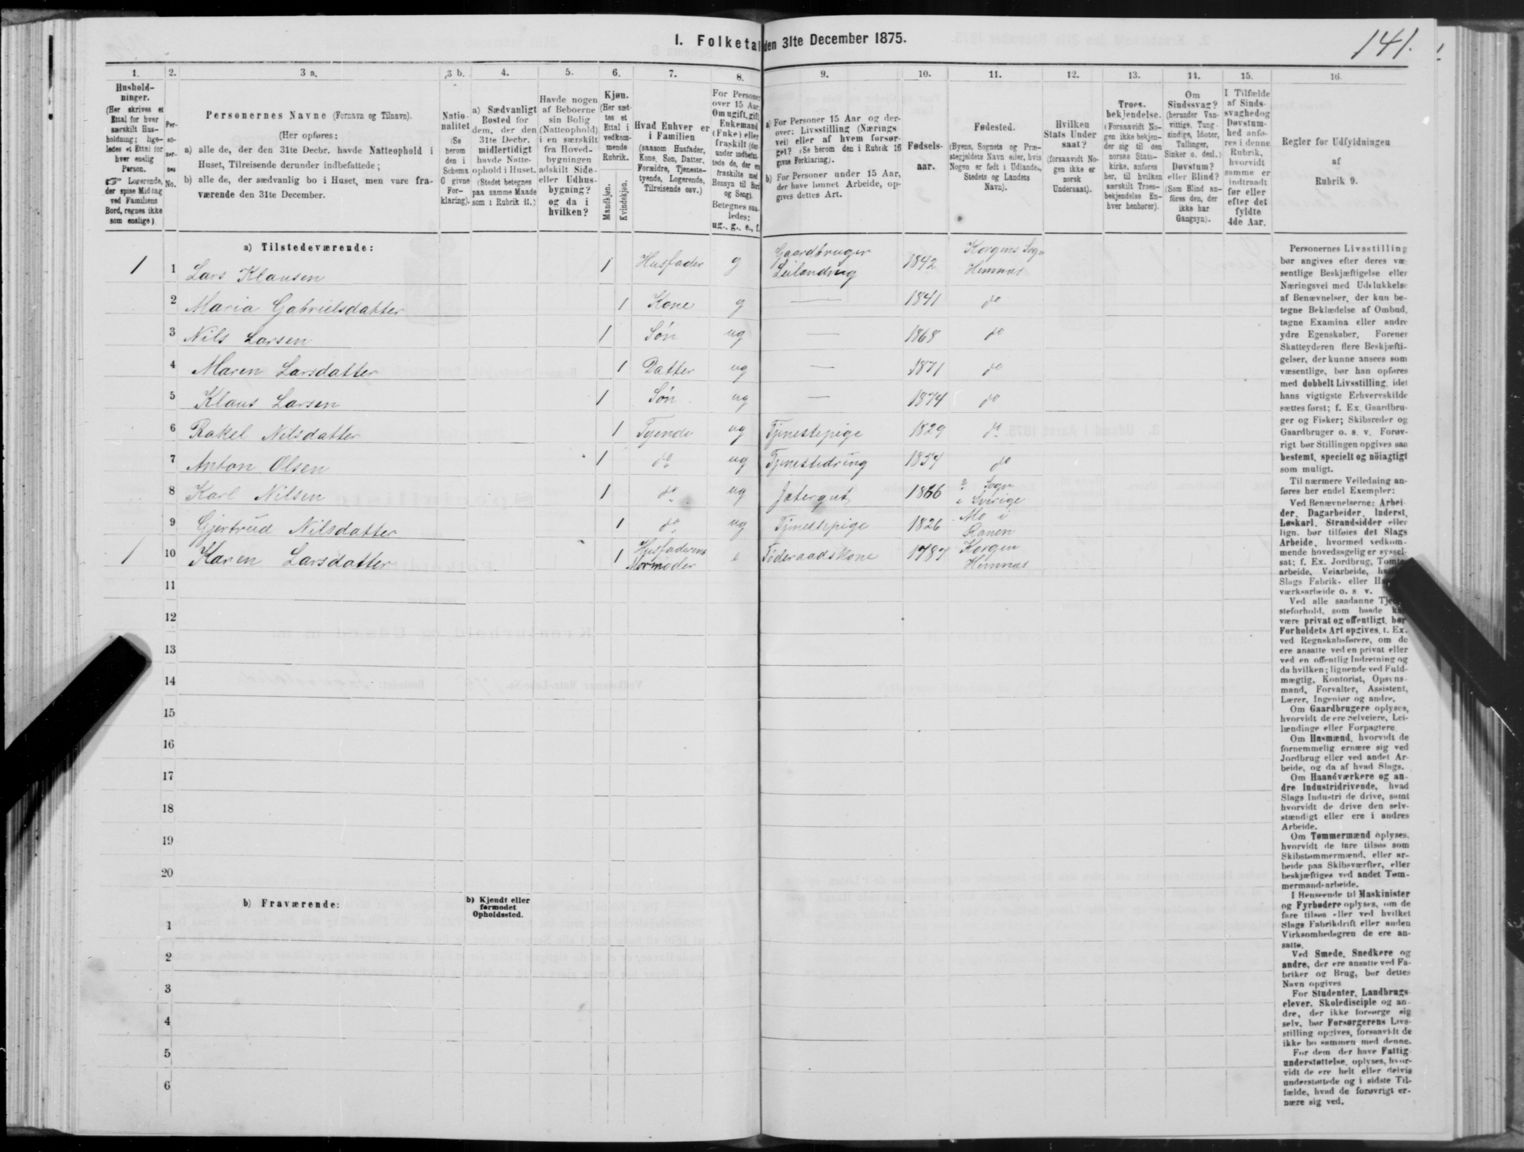 I. Folketal den 31te December 1875.
141.
1.
2.
3 a.
3 b.
4.
5.
6.
7.
8.
9.
10.
11.
12.
13.
14.
15.
16.
Hushold-
ninger.
(Her skrives et
Ettal for hver
særskilt Hus-
holdning; lige-
ledes et Ettal for
hver enslig
Person.
☞ Logerende,
der spise Middag
ved Familiens
Bord, regnes ikke
som enslige)
Per-
so-
ner-
nes
No.
Personernes Navne (Fornavn og Tilnavn).
(Her opføres:
a) alle de, der den 31te Decbr. havde Natteophold i
Huset, Tilreisende derunder indbefattede;
b) alle de, der sædvanlig bo i Huset, men vare fra-
værende den 31te December.
Natio-
nalitet
(Se
herom
den i
Schema
G givne
For-
klaring).
a) Sædvanligt
Bosted for
dem, der den
31te Decbr.
midlertidigt
havde Natte-
ophold i Huset.
(Stedet betegnes
paa samme Maade
som i Rubrik 11.)
Havde nogen
af Beboerne
sin Bolig
(Natteophold)
i en særskilt
fra Hoved-
bygningen
adskilt Side-
eller Udhus-
bygning?
og da i
hvilken?
Kjøn.
(Her sæt-
tes et
Ettal i
vedkom-
mende
Rubrik.
Mandkjøn.
Kvindekjøn.
Hvad Enhver er
i Familien
(saasom Husfader,
Kone, Søn, Datter,
Forældre, Tjeneste-
tyende, Logerende,
Tilreisende osv.)
For Personer
over 15 Aar:
Om ugift, gift,
Enkemand
(Enke) eller
fraskilt
Betegnes saa-
ledes:
ug., g., e., f.
a) For Personer 15 Aar og der-
over: Livsstilling (Nærings-
vei) eller af hvem forsør-
get? (Se herom den i Rubrik 16
givne Forklaring).
b) For Personer under 15 Aar,
der have lønnet Arbeide, op-
gives dettes Art.
Fødsels-
aar.
Fødested.
(Byens, Sognets og Præ-
stegjeldets Navn eller, hvis
Nogen er født i Udlandet,
Stedets og Landets
Navn).
Hvilken
Stats Under
saat?
(forsaavidt No-
gen ikke er
norsk
Undersaat).
Troes-
bekjendelse.
(Forsaavidt No-
gen ikke bekjen-
der sig til den
norske Stats-
kirke, anføres
her, til hvilken
særskilt Troes-
bekjendelse En-
hver henhører).
Om
Sindssvag?
(herunder Van-
vittige, Tung-
sindige, Idioter,
Tullinger,
Sinker o. desl.)
Døvstum?
eller Blind?
(Som Blind an-
føres den, der
ikke har
Gangsyn).
I Tilfælde
af Sinds-
svaghed og
Døvstum-
hed anfø-
res i denne
Rubrik,
hvorvidt
samme er
indtraadt
før eller
efter det
fyldte
4de Aar.
Regler for Udfyldningen
af
Rubrik 9.
a) Tilstedeværende:
1 1 Lars Klausen 1 Husfader g Gaardbruger Leilending 1842 Korgens Sogn Hemnæs
2 Maria Gabrielsdatter 1 Kone g — 1841 do
3 Nils Larsen 1 Søn ug — 1868 do
4 Maren Larsdatter 1 Datter ug — 1871 do
5 Klaus Larsen 1 Søn ug — 1874 do
6 Rakel Nilsdatter 1 Tyende ug Tjenestepige 1829 do
7 Anton Olsen 1 do ug Tjenestedreng 1857 do
8 Karl Nilsen 1 do ug Jætergut 1866 ? Sogn i Sverige
9 Gjertrud Nilsdatter 1 do ug Tjenestepige 1826 Mo i Ranen
1 10 Karen Larsdatter 1 Husfaderens Mormoder e Føderaadskone 1787 Korgen Hemnæs
11
12
13
14
15
16
17
18
19
20
b) Fraværende:
b) Kjendt eller
formodet
Opholdssted.
1
2
3
4
5
6
Personernes Livsstilling
bør angives efter deres væ-
sentlige Beskjæftigelse eller
Næringsvei med Udelukkelse
af Benævnelser, der kun be-
tegne Beklædelse af Ombud,
tagne Examina eller andre
ydre Egenskaber. Forener
Skatteyderen flere Beskjæfti-
gelser, der kunne ansees som
væsentlige, bør han opføres
med dobbelt Livsstilling, idet
hans vigtigste Erhvervskilde
sættes først; f. Ex. Gaardbru-
ger og Fisker; Skibsreder og
Gaardbruger o. s. v. Forøv-
rigt bør Stillingen opgives saa
bestemt, specielt og nøiagtigt
som muligt.
Til nærmere Veiledning an-
føres her endel Exempler:
Ved Benævnelserne: Arbei-
der, Dagarbeider, Inderst,
Løskarl, Strandsidder eller
lign. bør tilføies det Slags
Arbeide, hvormed vedkom-
mende hovedsagelig er syssel-
sat; f. Ex. Jordbrug, Tomte-
arbeide, Veiarbeide,
Slags Fabrik- eller
værksarbeide o. s. v.
Ved alle saadanne
steforhold, som baade
være privat og offentligt, bør
Forholdets Art opgives, t. Ex.
ved Regnskabsførere, om de
ere ansatte ved en privat eller
ved en offentlig Indretning og
da hvilken; lignende ved Fuld-
mægtig, Kontorist, Opsyns-
mand, Forvalter, Assistent,
Lærer, Ingeniør og andre.
Om Gaardbrugere oplyses,
hvorvidt de ere Selveiere, Lei-
lændinge eller Forpagtere.
Om Husmænd, hvorvidt de
fornemmelig ernære sig ved
Jordbrug eller ved andet Ar-
beide, og da af hvad Slags.
Om Haandværkere og an-
dre Industridrivende, hvad
Slags Industri de drive, samt
hvorvidt de drive den selv-
stændigt eller ere i andres
Arbeide.
Om Tømmermænd oplyses,
hvorvidt de fare tilsøs som
Skibstømmermænd, eller ar-
beide paa Skibsværfter, eller
beskjæftiges ved andet Tøm-
mermandsarbeide.
I Henseende til Maskinister
og Fyrbødere oplyses, om de
fare tilsøs eller ved hvilket
Slags Fabrikdrift eller anden
Virksomhedsgren de ere an-
satte.
Ved Smede, Snedkere og
andre, der ere ansatte ved Fa-
briker og Brug, bør dettes
Navn opgives
For Studenter, Landbrugs-
elever, Skoledisciple og an-
dre, der ikke forsørge sig
selv, bør Forsørgerens Livs-
stilling opgives, forsaavidt de
ikke bo sammen med denne.
For dem der have Fattig-
understøttelse, oplyses, hvor-
vidt de ere helt eller delvis
understøttede og i sidste Til-
fælde, hvad de forøvrigt er-
nære sig ved.